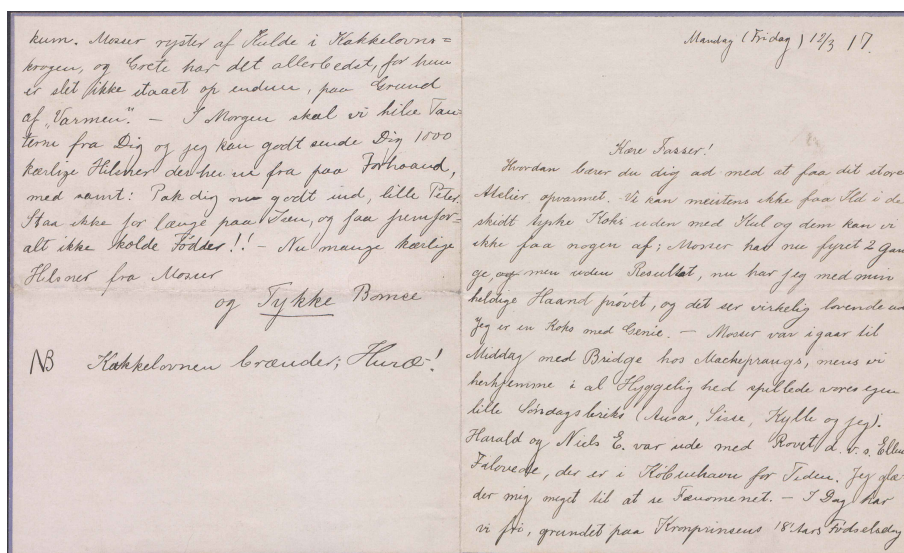 kum. Mosser ryster af Kulde i Kakkelovns=
krogen, og Grete har det allerbedst, for hun
er slet ikke staaet op endnu, paa Grund
af "Varmen". — I Morgen skal vi hilse Tan-
terne fra Dig og jeg kan godt sende Dig 1000
kærlige Hilsner der fra paa Forhaand,
med samt: Pak dig nu godt ind, lille Peter.
Staa ikke for længe paa Isen, og faa fremfor-
alt ikke kolde Fødder!! — Nu mange kærlige
Hilsner fra Mosser
og Tykke Bomse
NB Kakkelovnen brænder; Hura!
Mandag (Fridag) 12/3 17.
Kære Fasser!
Hvordan bærer du dig ad med at faa dit store
Atelier opvarmet. Vi kan næsten ikke faa Ild i de
skidt tykke Koks uden med Kul og dem kan vi
ikke faa nogen af; Mosser har nu fyret 2 Gan
ge men uden Resultat, nu har jeg med min
heldige Haand prøvet, og det ser virkelig lovende ud
Jeg er en Koks med Genie. — Mosser var igaar til
Middag med Bridge hos Mackeprangs, mens vi
herhjemme i al Hyggelighed spillede vores egen
lille Søndagsbriks (Ausa, Sisse, Kylle og jeg).
Harald og Niels E. var ude med Rovet d.v.s. Ellen
Falovede, der er i København for Tiden. Jeg glæ-
der mig meget til at se Fænomenet. — I Dag har
vi fri, grundet paa Kronprinsens 18 Aars Fødselsdag